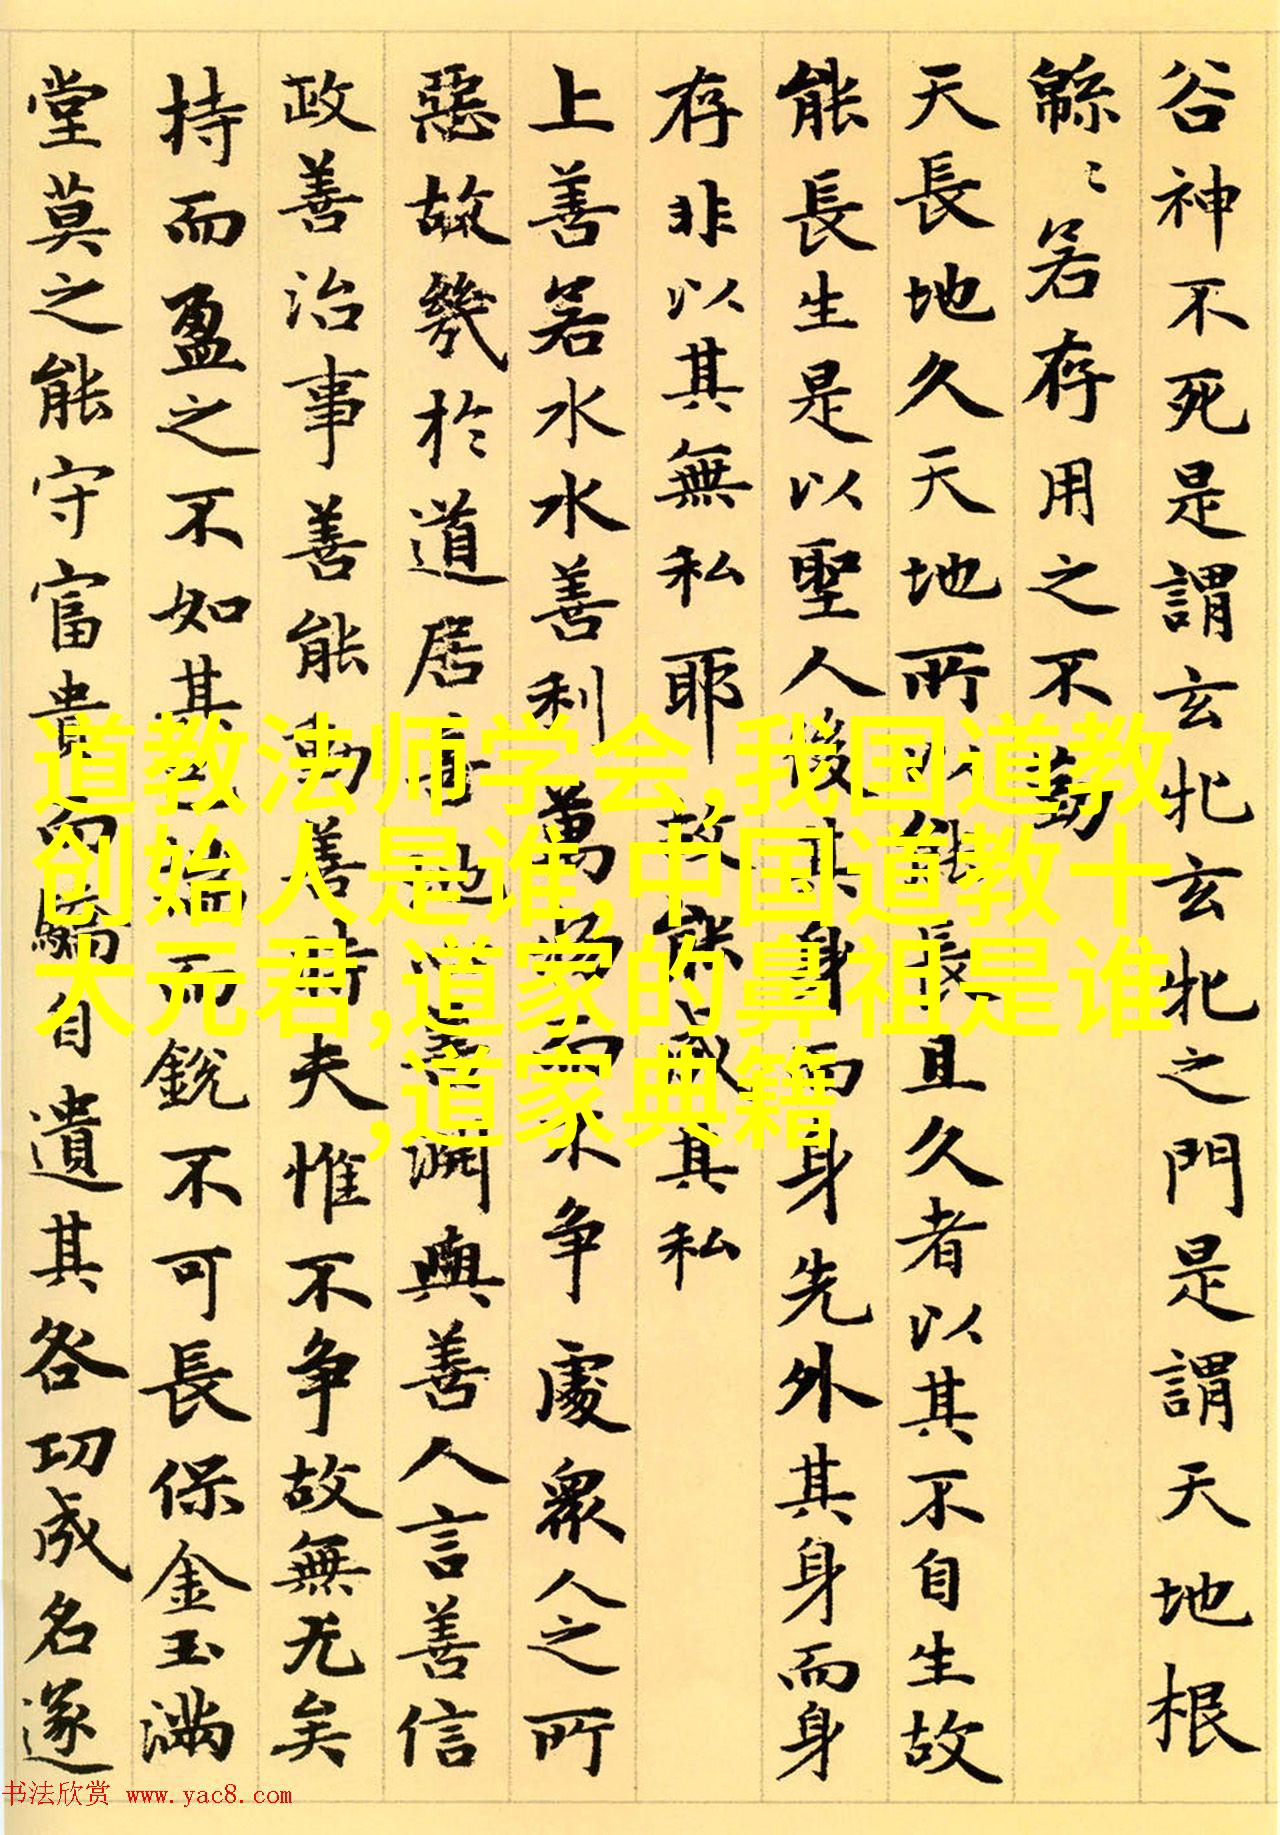 谷神不死是謂玄牝玄牝之門是謂天地根
緜〻若存用之不勤
天長地久天地所以能長且久者以其不自生故
能長生是以聖人後其身而身先外其身而身
存非以其無私耶故能成其私
上善若水水善利萬物而不争處衆人之所
惡故幾於道居善地心善淵與善人言善信
政善治事善能動善時夫惟不争故無尤矣
持而盈之不如其已揣而銳不可長保金玉滿
堂莫之能守富貴而驕自遺其咎功成名遂
道教法师学会,我国道教
创始人是谁,中国道教十
大元君,道家的鼻祖是谁
,道家典籍
书法欣赏 www.yac8.com